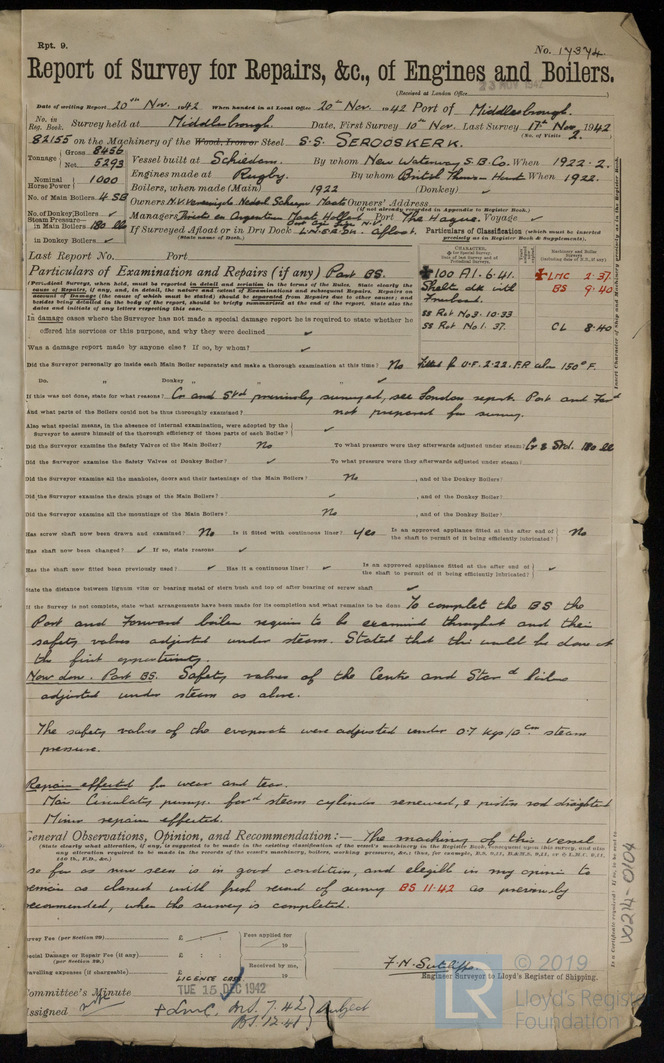 Rpt. 9.
No. 17374
Report of Survey for Repairs, &c., of Engines and Boilers.
(Received at London Office 23 NOV 1942)
Date of writing Report 20th Nov. 1942 When handed in at Local Office 20th Nov. 1942 Port of Middlesbrough.
No. in Reg. Book. Survey held at Middlesbrough. Date, First Survey 10th Nov. Last Survey 17th Nov. 1942
(No. of Visits 2.)
82155 on the Machinery of the Wood, Iron or Steel S.S. SEROOSKERK.
Tonnage Gross 8456 Net 5293
Vessel built at Schiedam. By whom New Waterway S.B. Co. When 1922.2.
Nominal Horse Power 1000
Engines made at Rugby. By whom British Thomson-Houston When 1922.
No. of Main Boilers 4 SB
Boilers, when made (Main) 1922 (Donkey) ✓
No. of Donkey Boilers ✓
Owners Owners' Address
(if not already recorded in Appendix to Register Book.)
Steam Pressure— in Main Boilers 180 lb
Managers Port The Hague. Voyage ✓
in Donkey Boilers ✓
If Surveyed Afloat or in Dry Dock afloat.
(State name of Dock.)
Particulars of Classification (which must be inserted precisely as in Register Book & Supplements).
Last Report No. Port
Particulars of Examination and Repairs (if any) Part BS.
✠ 100 A1. 6.41.
Shelter dk with
Freeboard.
SS Rot No 3. 10.33
SS Rot No 1. 37.
✠ LMC 2.37
BS 9.40
CL 8.40
In damage cases where the Surveyor has not made a special damage report he is required to state whether he
offered his services for this purpose, and why they were declined ✓
Was a damage report made by anyone else? If so, by whom? ✓
Did the Surveyor personally go inside each Main Boiler separately and make a thorough examination at this time? No
Fitted for O.F. 2.22. F.P. abv 150°F.
Do. " Donkey " " " ✓
If this was not done, state for what reasons? Co and Std previously surveyed, see London report. Port and Ford
And what parts of the Boilers could not be thus thoroughly examined? not prepared for survey.
Also what special means, in the absence of internal examination, were adopted by the
Surveyor to assure himself of the thorough efficiency of those parts of each Boiler? ✓
Did the Surveyor examine the Safety Valves of the Main Boiler? No To what pressure were they afterwards adjusted under steam? Cr & Std. 180 lb
Did the Surveyor examine the Safety Valves of Donkey Boiler? ✓ To what pressure were they afterwards adjusted under steam?
Did the Surveyor examine all the manholes, doors and their fastenings of the Main Boilers? No , and of the Donkey Boilers?
Did the Surveyor examine the drain plugs of the Main Boilers? ✓ , and of the Donkey Boilers?
Did the Surveyor examine all the mountings of the Main Boilers? No , and of the Donkey Boilers?
Has screw shaft now been drawn and examined? No Is it fitted with continuous liner? Yes Is an approved appliance fitted at the after end of the shaft to permit of it being efficiently lubricated? No
Has shaft now been changed? ✓ If so, state reasons ✓
Has the shaft now fitted been previously used? ✓ Has it a continuous liner? ✓ Is an approved appliance fitted at the after end of the shaft to permit of it being efficiently lubricated? ✓
State the distance between lignum vitæ or bearing metal of stern bush and top of after bearing of screw shaft ✓
If the Survey is not complete, state what arrangements have been made for its completion and what remains to be done To complet the BS the
Port and Forward boilers require to be examined throughout and their
safety valves adjusted under steam. Stated that this would be done at
the first opportunity.
Now done. Part BS. Safety valves of the Centre and Stard boilers
adjusted under steam as above.
The safety valves of the evaporator were adjusted under 0.7 kgs/□ cm steam
pressure.
Repairs effected for wear and tear.
Main Circulating pump. ford steam cylinder renewed, & piston rod straighted
Minor repairs effected.
General Observations, Opinion, and Recommendation:— The machinery of this vessel
so far as now seen is in good condition, and elegible in my opinion to
remain as classed with fresh record of survey BS 11.42 as previously
recommended, when the survey is completed.
Survey Fee (per Section 29) £ : :
Special Damage or Repair Fee (if any) (per Section 29.) £ : :
Travelling expenses (if chargeable) £ : :
Fees applied for 19
Received by me, 19
F. N. Sutcliffe
Engineer Surveyor to Lloyd's Register of Shipping.
LICENCE CASE
Committee's Minute TUE 15 DEC 1942
Assigned + LMC. MS. 7.42 BS. 12.41 Subject
W214-0104
© 2019
LR
Lloyd's Register
Foundation